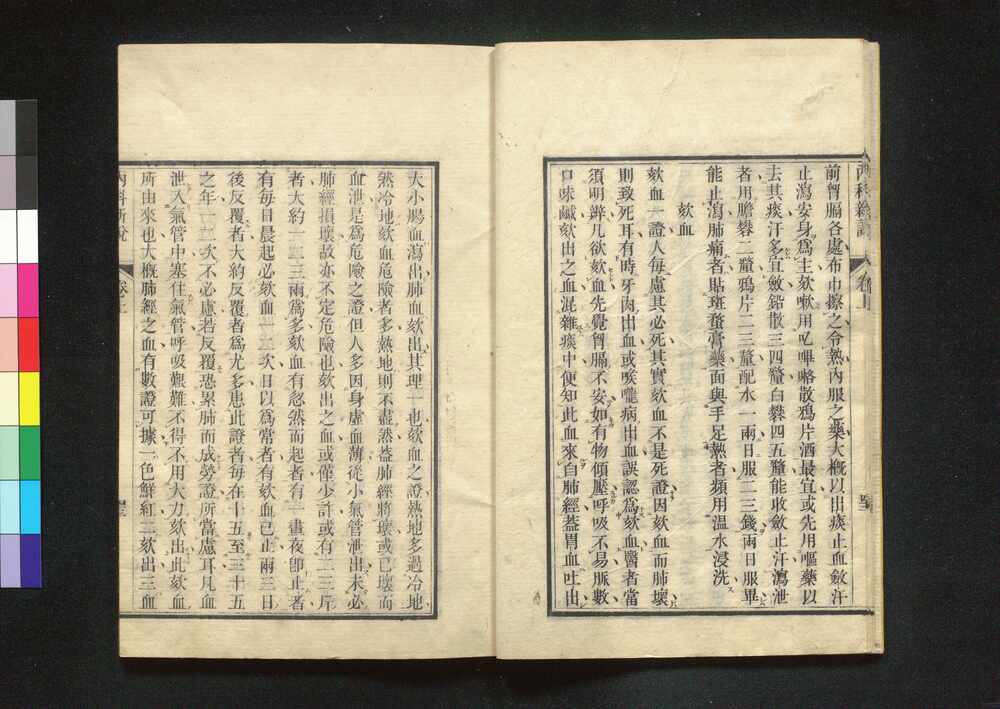 前曾膈各處布巾擦之令熱內服之藥大概以出痰止血斂汗
止瀉安身爲主欬嗽用叱嗶咯散鴉片酒最宜或先用嘔藥以
去其痰汗多宜斂鉛散三四釐白礬四五釐能收斂止汗瀉泄
者用膽礬二釐鴉片二三釐配水一兩日服二三錢兩日服畢
能止瀉肺痛者貼斑蝥膏藥面與手足熱者頻用温水浸洗
欬血
欬血一證人每慮其必死其實欬血不是死證因欬血而肺壞
則致死耳有時牙肉出血或喉嚨病出血誤認爲欬血醫者當
須明辨凡欲欬血先覺曾膈不安如有物傾壓呼吸不易脈數
口味鹹欬出之血混雜痰中便知此血來自肺經蓋胃血吐出
大小腸血瀉出肺血欬出其理一也欬血之證熱地多過冷地
然冷地欬血危險者多熱地則不盡然蓋肺經將壞或已壞而
血泄是爲危險之證但人多因身虛血薄從小氣管泄出未必
肺經損壞故亦不定危險也欬出之血或僅少許或有二三斤
者大約一二三兩爲多欬血有忽然而起者有一晝夜卽止者
有每日晨起必欬血一二次日以爲常者有欬血已止兩三日
後反覆者大約反覆者爲尤多患此證者每在十五至三十五
之年一二次不必慮若反覆恐累肺而成勞證所當慮耳凡血
泄入氣管中塞住氣管呼吸艱難不得不用大力欬出此欬血
所由來也大概肺經之血有數證可據一色鮮紅二欬出三血